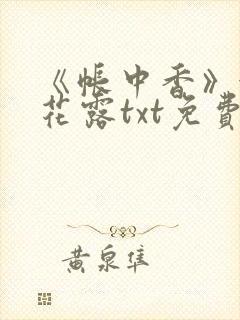 《帐中香》
花露txt免費
黄泉隼